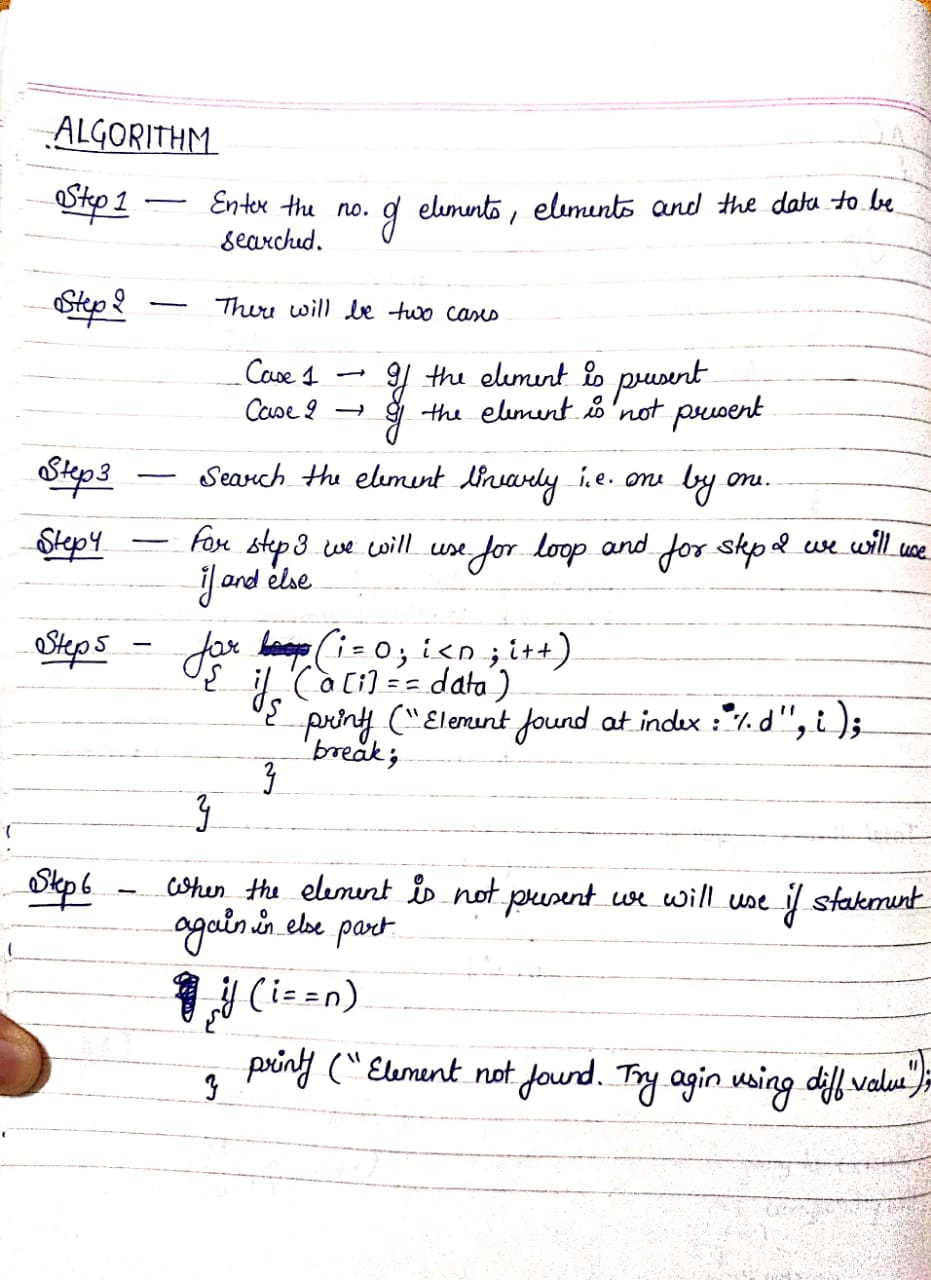 ALGORITHM
Step 1 — Enter the no. of elements, elements and the data to be
searched.
Step 2 — There will be two cases
Case 1 → If the element is present
Case 2 → If the element is not present
Step 3 — Search the element linearly i.e. one by one.
Step 4 — For step 3 we will use for loop and for step 2 we will use
if and else
Step 5 – for (i = 0; i<n ; i++)
{ if (a[i] == data)
{ printf ("Element found at index : %d", i );
break;
}
}
Step 6 – When the element is not present we will use if statement
again in else part.
if (i==n)
{
printf ("Element not found. Try agin using diff value");
}